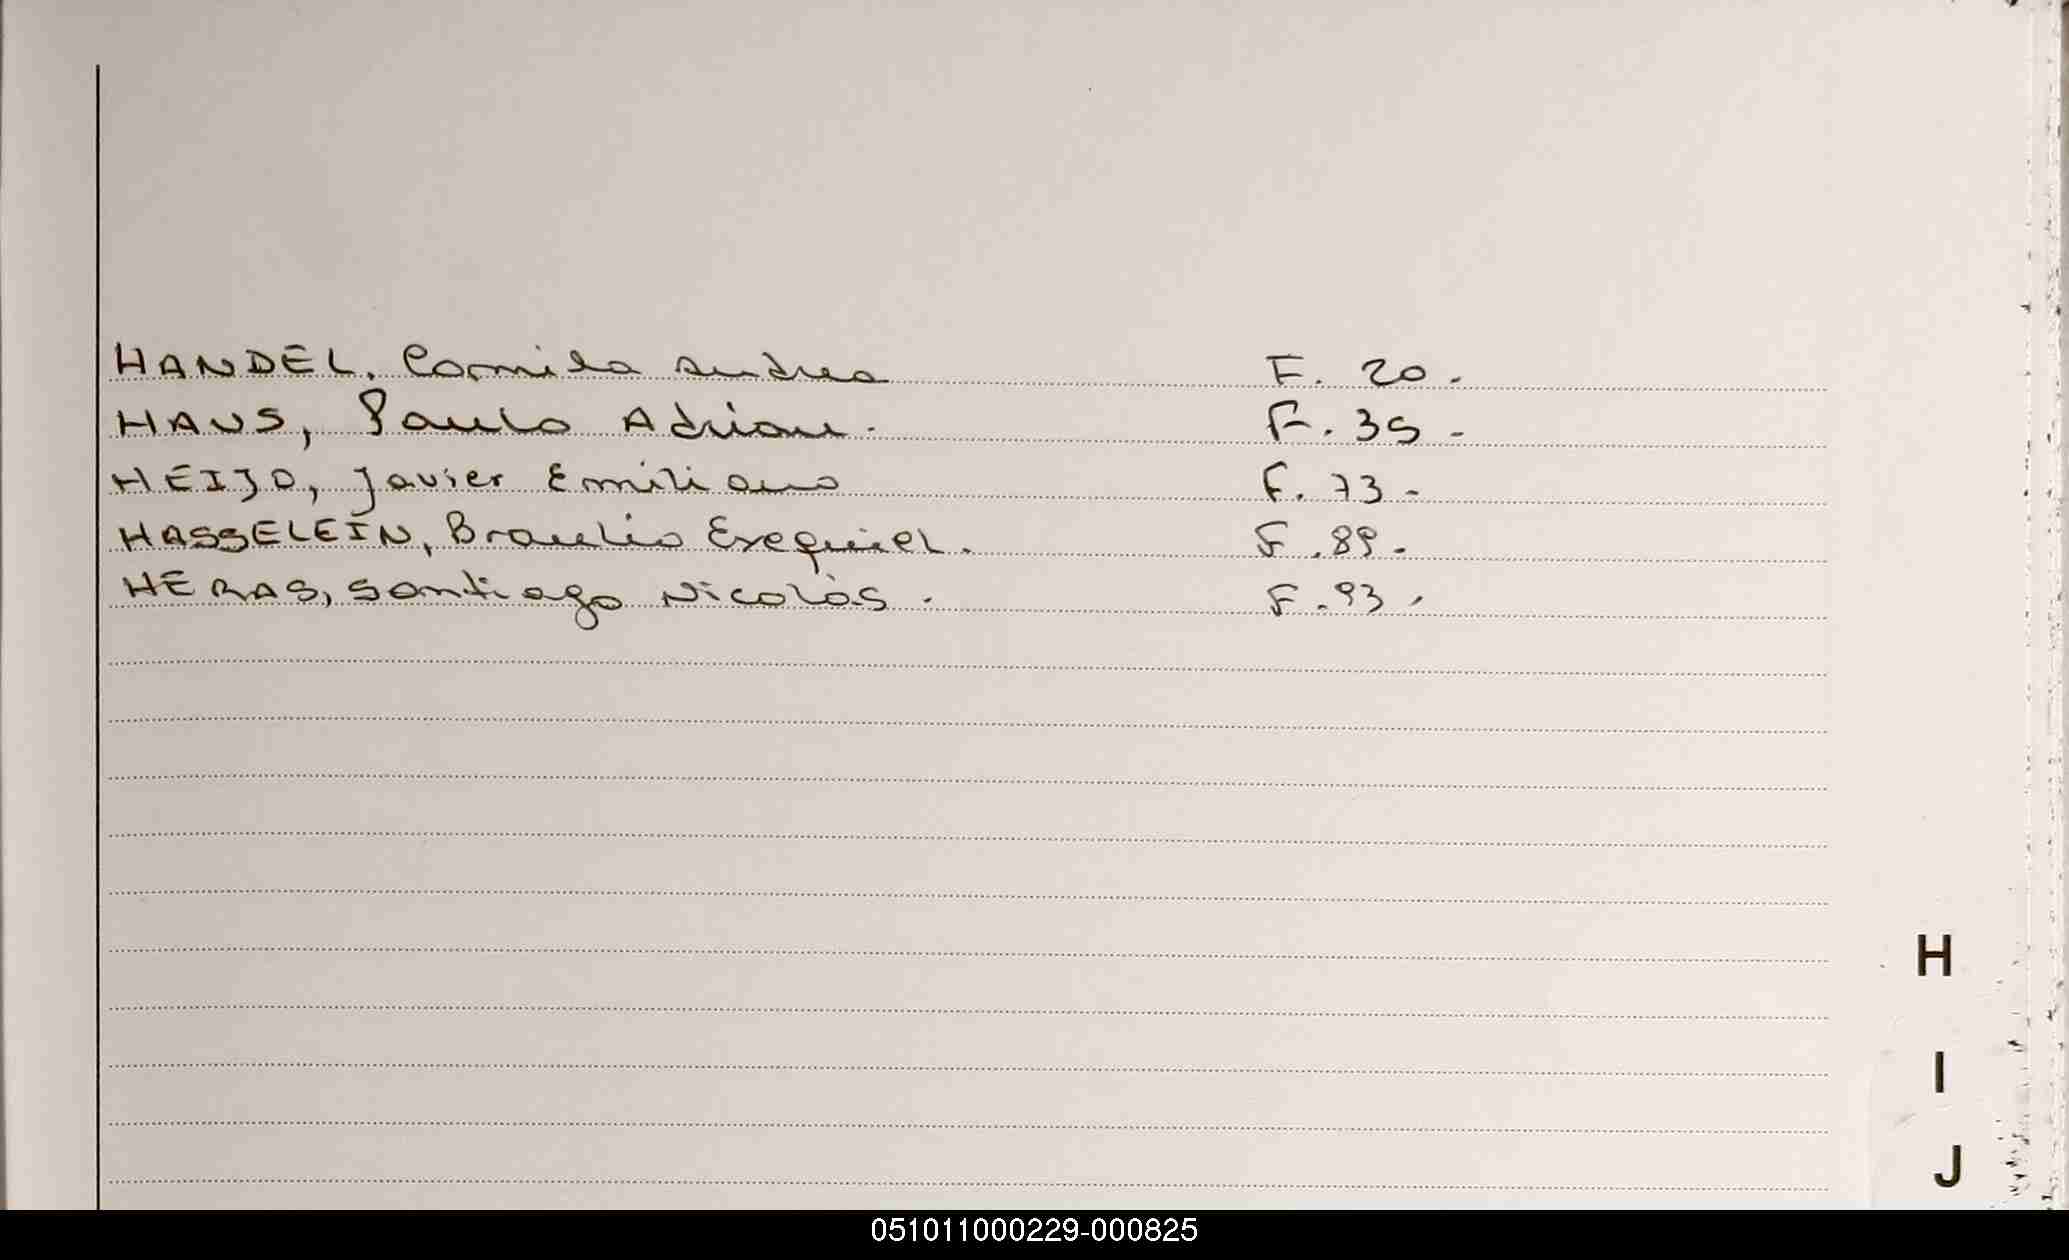 HANDEL, Camila Andrea F. 20.
HAUS, Paulo Adrian. F. 35 -
HEIJO, Javier Emiliano F. 73 -
HASSELEIN, Braulio Exequiel. F. 89.
HERAS, Santiago Nicolás. F. 93.
H
I
J
051011000229-000825